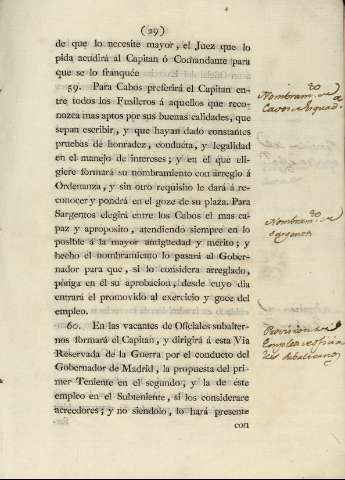 (29)
de que lo necesite mayor, el Juez que lo
pida acudirá al Capitan ó Comandante para
que se lo franquée
59. Para Cabos preferirá el Capitan en-
tre todos los Fusileros á aquellos que reco-
nozca mas aptos por sus buenas calidades, que
sepan escribir, y que hayan dado constantes
pruebas de honradez, conducta, y legalidad
en el manejo de intereses; y en el que eli-
giere formará su nombramiento con arreglo á
Ordenanza, y sin otro requisito le dará á re-
conocer y pondrá en el goze de su plaza. Para
Sargentos elegirá entre los Cabos el mas ca-
paz y aproposito, atendiendo siempre en lo
posible á la mayor antigüedad y mérito; y
hecho el nombramiento lo pasará al Gober-
nador para que, si lo considera arreglado,
ponga en él su aprobacion, desde cuyo dia
entrará el promovido al exercicio y goce del
empleo.
60. En las vacantes de Oficiales subalter-
nos formará el Capitan, y dirigirá á esta Via
Reservada de la Guerra por el conducto del
Gobernador de Madrid, la propuesta del pri-
mer Teniente en el segundo, y la de éste
empleo en el Subteniente, si los considerare
acreedores; y no siendolo, lo hará presente
con
Nombram.to de
Cavos
Nombram.to
Sargentos
Provision de
Empleos de oficia
les subalternos